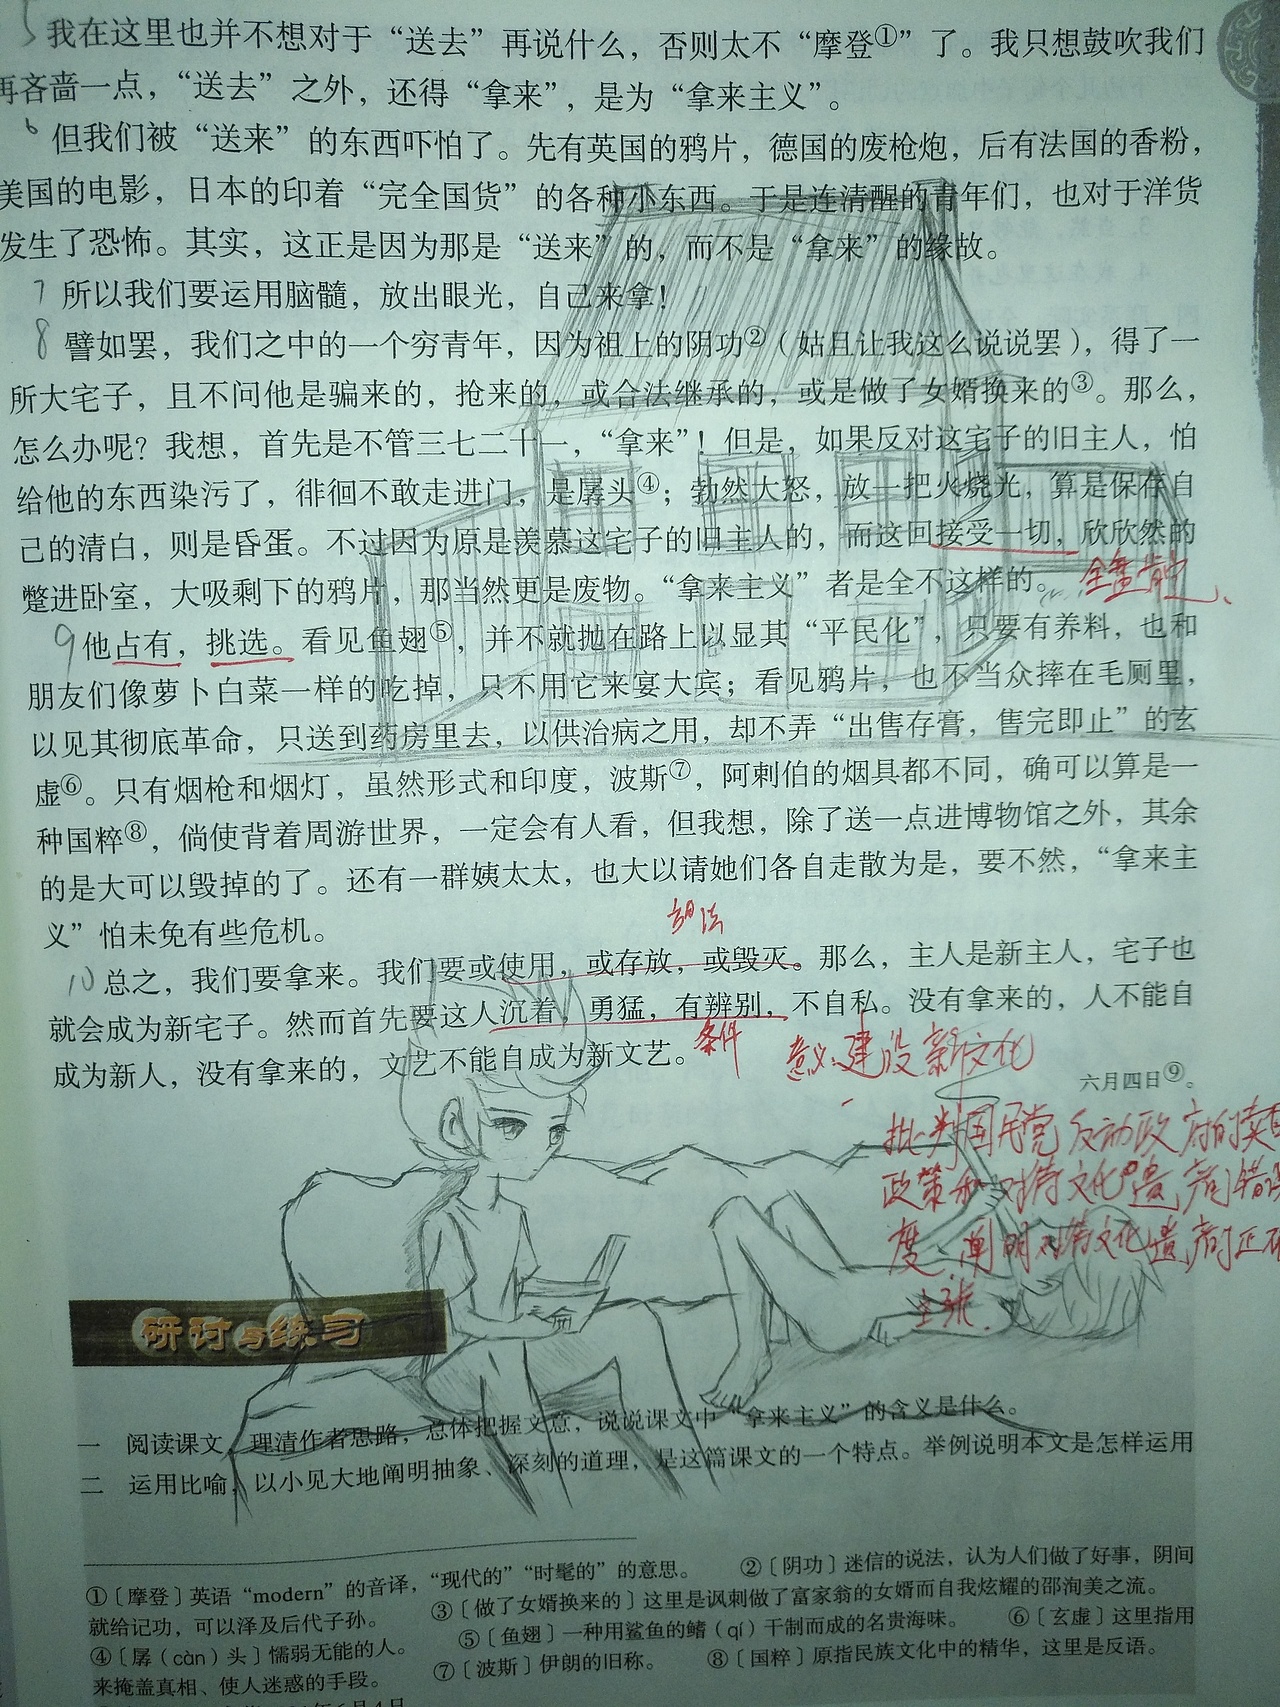 5 我在这里也并不想对于“送去”再说什么，否则太不“摩登①”了。我只想鼓吹我们
再吝啬一点，“送去”之外，还得“拿来”，是为“拿来主义”。
6 但我们被“送来”的东西吓怕了。先有英国的鸦片，德国的废枪炮，后有法国的香粉，
美国的电影，日本的印着“完全国货”的各种小东西。于是连清醒的青年们，也对于洋货
发生了恐怖。其实，这正是因为那是“送来”的，而不是“拿来”的缘故。
7 所以我们要运用脑髓，放出眼光，自己来拿！
8 譬如罢，我们之中的一个穷青年，因为祖上的阴功②（姑且让我这么说说罢），得了一
所大宅子，且不问他是骗来的，抢来的，或合法继承的，或是做了女婿换来的③。那么，
怎么办呢？我想，首先是不管三七二十一，“拿来”！但是，如果反对这宅子的旧主人，怕
给他的东西染污了，徘徊不敢走进门，是孱头④；勃然大怒，放一把火烧光，算是保存自
己的清白，则是昏蛋。不过因为原是羡慕这宅子的旧主人的，而这回接受一切，欣欣然的
蹩进卧室，大吸剩下的鸦片，那当然更是废物。“拿来主义”者是全不这样的。
全盘肯定
9 他占有，挑选。看见鱼翅⑤，并不就抛在路上以显其“平民化”，只要有养料，也和
朋友们像萝卜白菜一样的吃掉，只不用它来宴大宾；看见鸦片，也不当众摔在毛厕里，
以见其彻底革命，只送到药房里去，以供治病之用，却不弄“出售存膏，售完即止”的玄
虚⑥。只有烟枪和烟灯，虽然形式和印度，波斯⑦，阿剌伯的烟具都不同，确可以算是一
种国粹⑧，倘使背着周游世界，一定会有人看，但我想，除了送一点进博物馆之外，其余
的是大可以毁掉的了。还有一群姨太太，也大以请她们各自走散为是，要不然，“拿来主
义”怕未免有些危机。
10 总之，我们要拿来。我们要或使用，或存放，或毁灭。那么，主人是新主人，宅子也
就会成为新宅子。然而首先要这人沉着，勇猛，有辨别，不自私。没有拿来的，人不能自
成为新人，没有拿来的，文艺不能自成为新文艺。
条件
意义：建设新文化
六月四日⑨。
批判国民党反动政府的卖国
政策和对待文化遗产的错误
度，阐明对待文化遗产的正确
主张.
研讨与练习
一 阅读课文，理清作者思路，总体把握文意，说说课文中“拿来主义”的含义是什么。
二 运用比喻，以小见大地阐明抽象、深刻的道理，是这篇课文的一个特点。举例说明本文是怎样运用
①〔摩登〕英语“modern”的音译，“现代的”“时髦的”的意思。 ②〔阴功〕迷信的说法，认为人们做了好事，阴间
就给记功，可以泽及后代子孙。 ③〔做了女婿换来的〕这里是讽刺做了富家翁的女婿而自我炫耀的邵洵美之流。
④〔孱（càn）头〕懦弱无能的人。 ⑤〔鱼翅〕一种用鲨鱼的鳍（qí）干制而成的名贵海味。 ⑥〔玄虚〕这里指用
来掩盖真相、使人迷惑的手段。 ⑦〔波斯〕伊朗的旧称。 ⑧〔国粹〕原指民族文化中的精华，这里是反语。